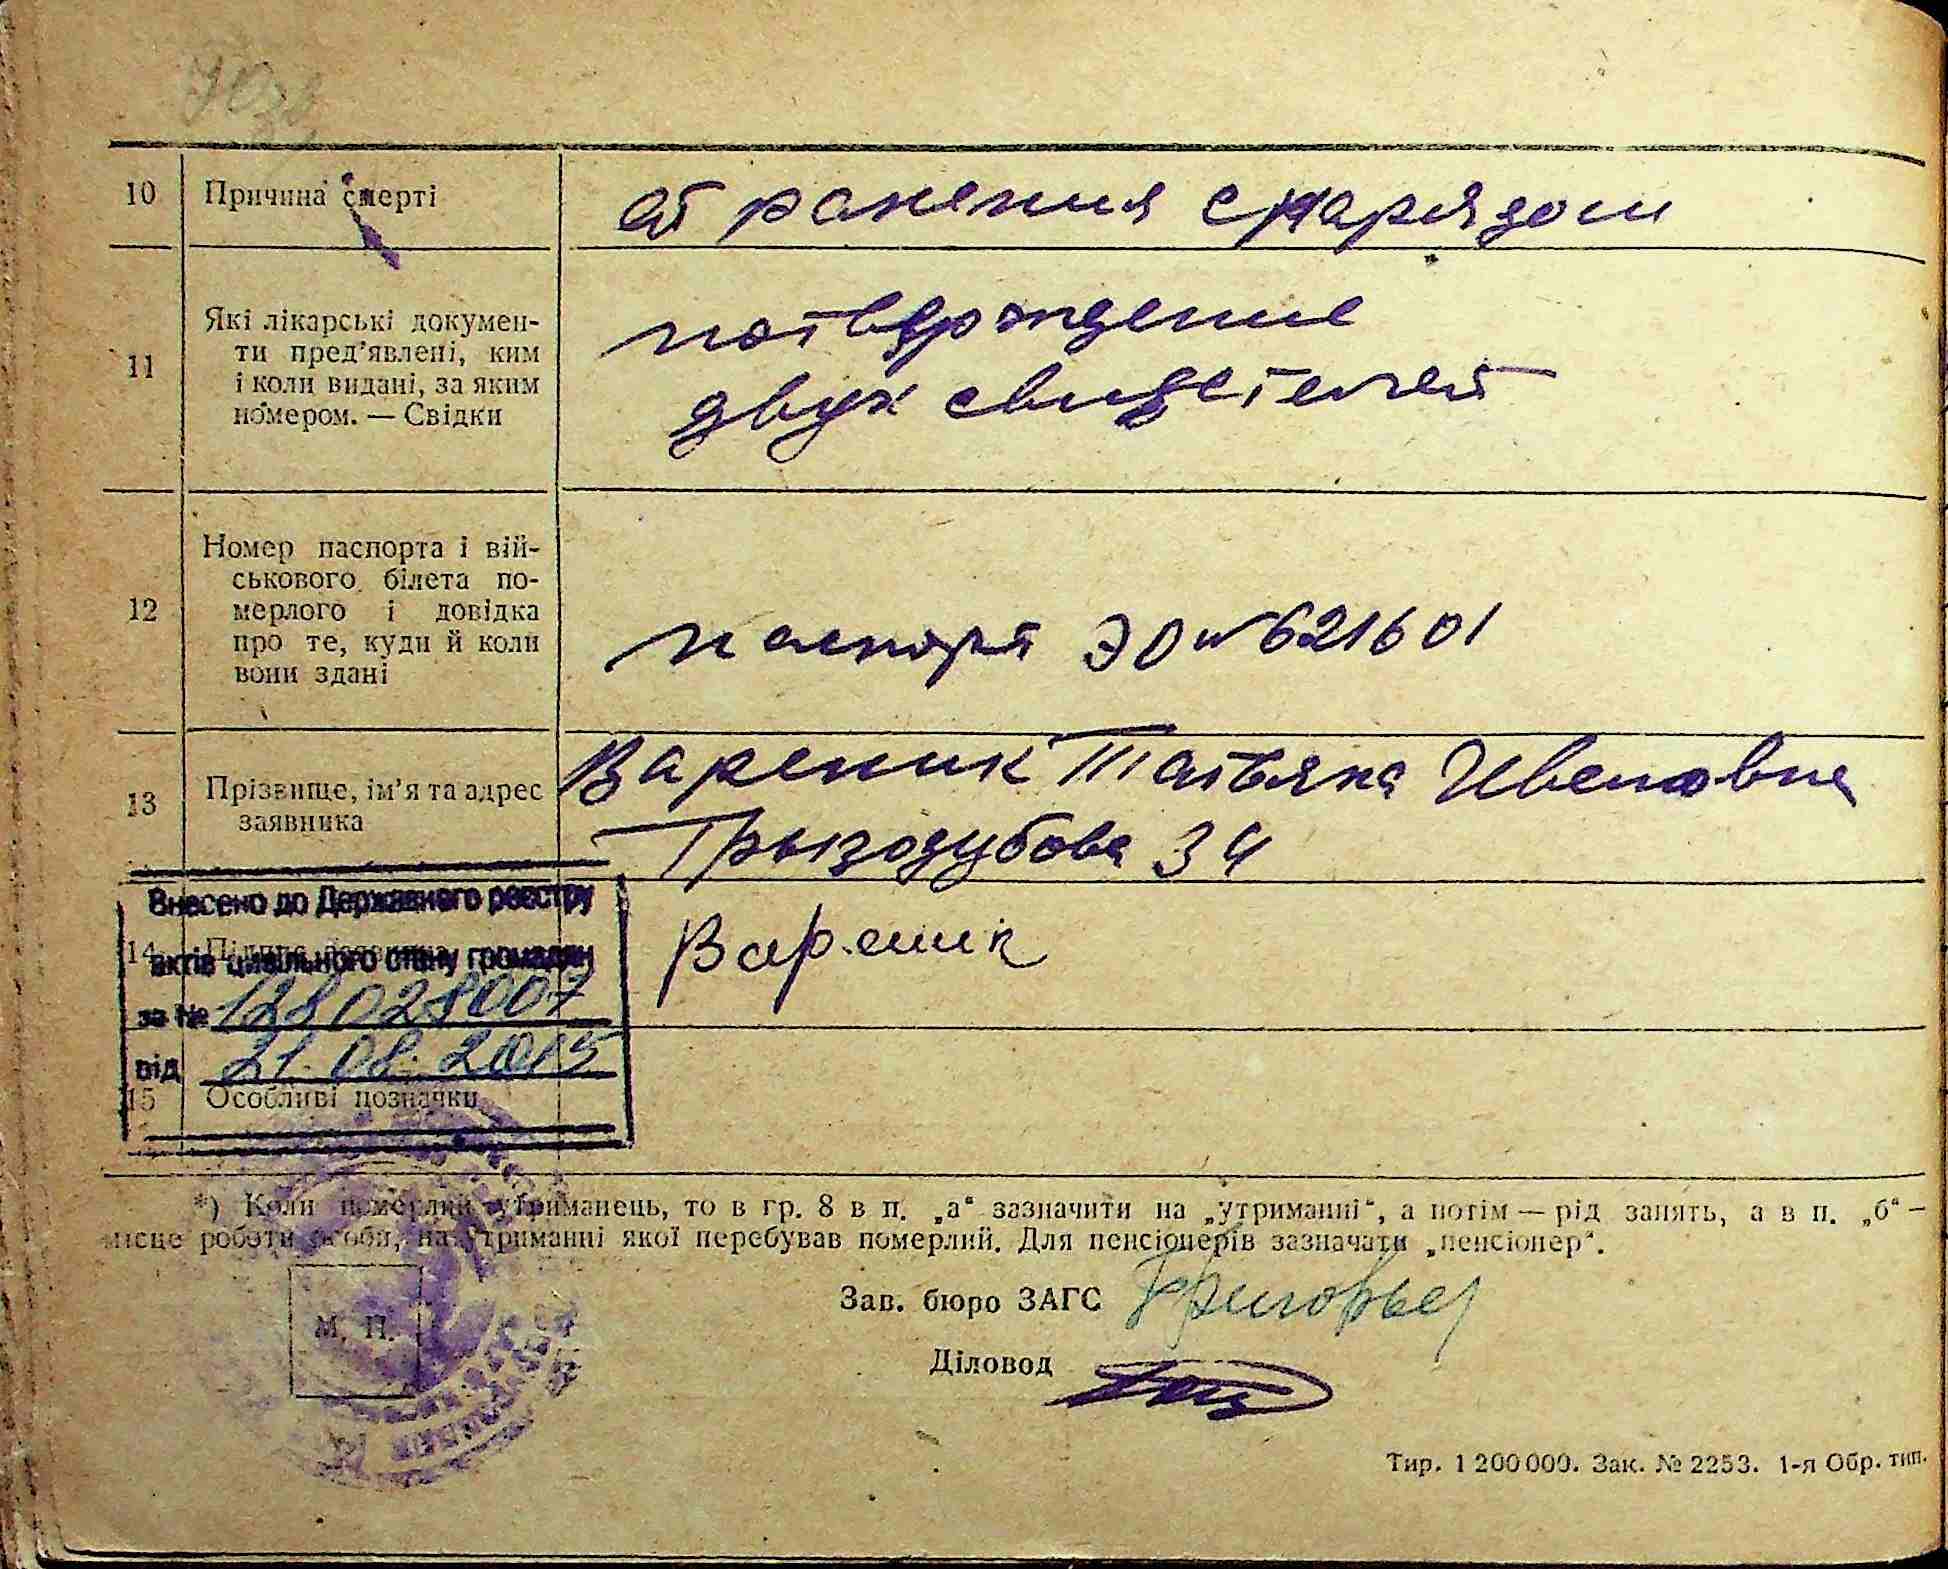 10 Причина смерті
от ранения снарядом
11 Які лікарські докумен-
ти пред'явлені, ким
і коли видані, за яким
номером. — Свідки
потверждение
двух свидетелей
12 Номер паспорта і вій-
ськового білета по-
мерлого і довідка
про те, куди й коли
вони здані
паспорт ЭО № 621601
13 Прізвище, ім'я та адрес
заявника
Вареник Татьяна Ивановна
Грызодубова 34
Внесено до Державного реєстру
актів цивільного стану громадян
за № 128028007
від 21.08.2015
14 Підпис заявника
Вареник
15 Особливі позначки
*) Коли померлий утриманець, то в гр. 8 в п. „а“ зазначити на „утриманні“, а потім — рід занять, а в п. „б“ —
місце роботи особи, на утриманні якої перебував померлий. Для пенсіонерів зазначати „пенсіонер“.
М. П.
Зав. бюро ЗАГС
Діловод
Тир. 1 200 000. Зак. № 2253. 1-я Обр. тип.